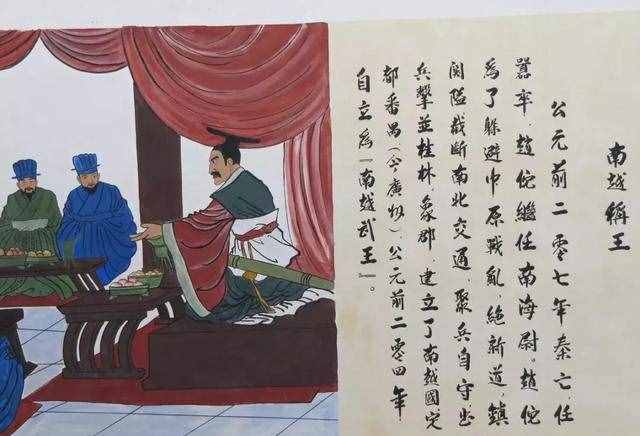 南越稱王
公元前二零七年秦亡，任
囂卒，趙佗繼任南海尉。趙佗
為了躲避中原戰亂，絕新道，鎮
関隘截斷南北交通，聚兵自守出
兵擊並桂林象郡，建立了南越國定
都番禺（今廣州），公元前二零四年
自立為『南越武王』。